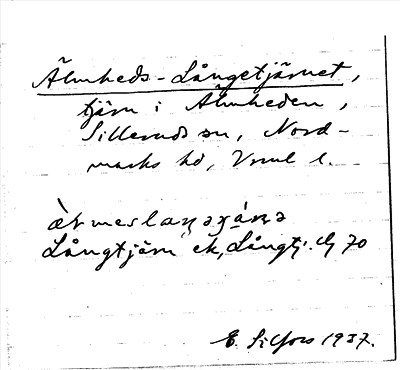 Älmheds-Långetjärnet,
tjärn i Älmheden,
Sillerud sn, Nord-
marks hd, Vrml l.
Långtjärn ek, Långtj. Cg 70
E. Silfors 1937.